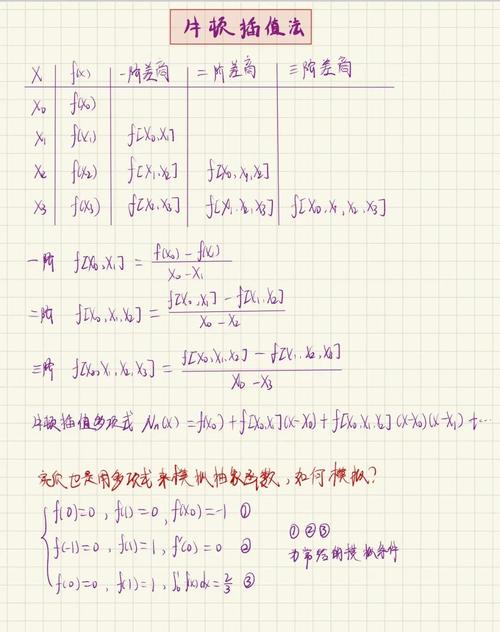 牛顿插值法
X f(x) 一阶差商 二阶差商 三阶差商
X₀ f(X₀)
X₁ f(X₁) f[X₀,X₁]
X₂ f(X₂) f[X₁,X₂] f[X₀,X₁,X₂]
X₃ f(X₃) f[X₂,X₃] f[X₁,X₂,X₃] f[X₀,X₁,X₂,X₃]
一阶 f[X₀,X₁] = (f(X₀) − f(X₁)) / (X₀ − X₁)
二阶 f[X₀,X₁,X₂] = (f[X₀,X₁] − f[X₁,X₂]) / (X₀ − X₂)
三阶 f[X₀,X₁,X₂,X₃] = (f[X₀,X₁,X₂] − f[X₁,X₂,X₃]) / (X₀ − X₃)
牛顿插值多项式 Nₙ(X) = f(X₀) + f[X₀,X₁](X−X₀) + f[X₀,X₁,X₂](X−X₀)(X−X₁) + ⋯
也是用多项式来模拟抽象函数,如何模拟?
f(0)=0 , f(1)=0 , f'(X₀)=−1 ①
f(−1)=0 , f(1)=1 , f'(0)=0 ②
f(0)=0 , f(1)=1 , ∫₀¹f(x)dx=2/3 ③
① ② ③
为常给的模拟条件